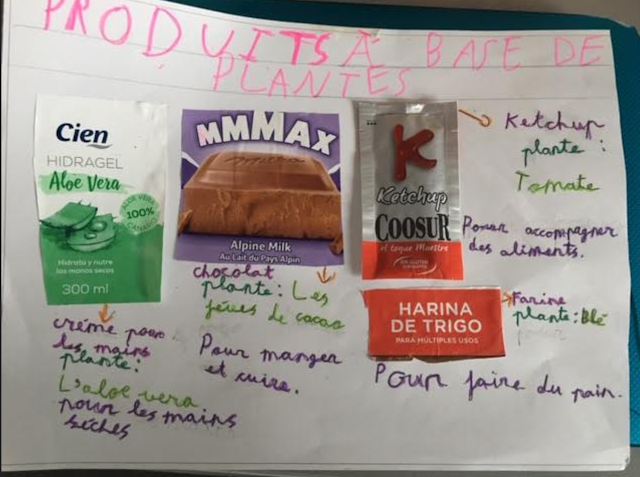 PRODUITS À BASE DE
PLANTES
Cien
HIDRAGEL
Aloe Vera
ALOE VERA
100%
CANARIAS
Hidrata y nutre
las manos secas
300 ml
crème pour
les mains
plante:
L'aloe vera
pour les mains
sèches
MMMAX
Alpine Milk
Au Lait du Pays Alpin
chocolat
plante: Les
fèves de cacao
Pour manger
et cuire.
K
Ketchup
COOSUR
el toque Maestro
Ketchup
plante:
Tomate
Pour accompagner
des aliments.
HARINA
DE TRIGO
PARA MÚLTIPLES USOS
Farine
plante: Blé
Pour faire du pain.